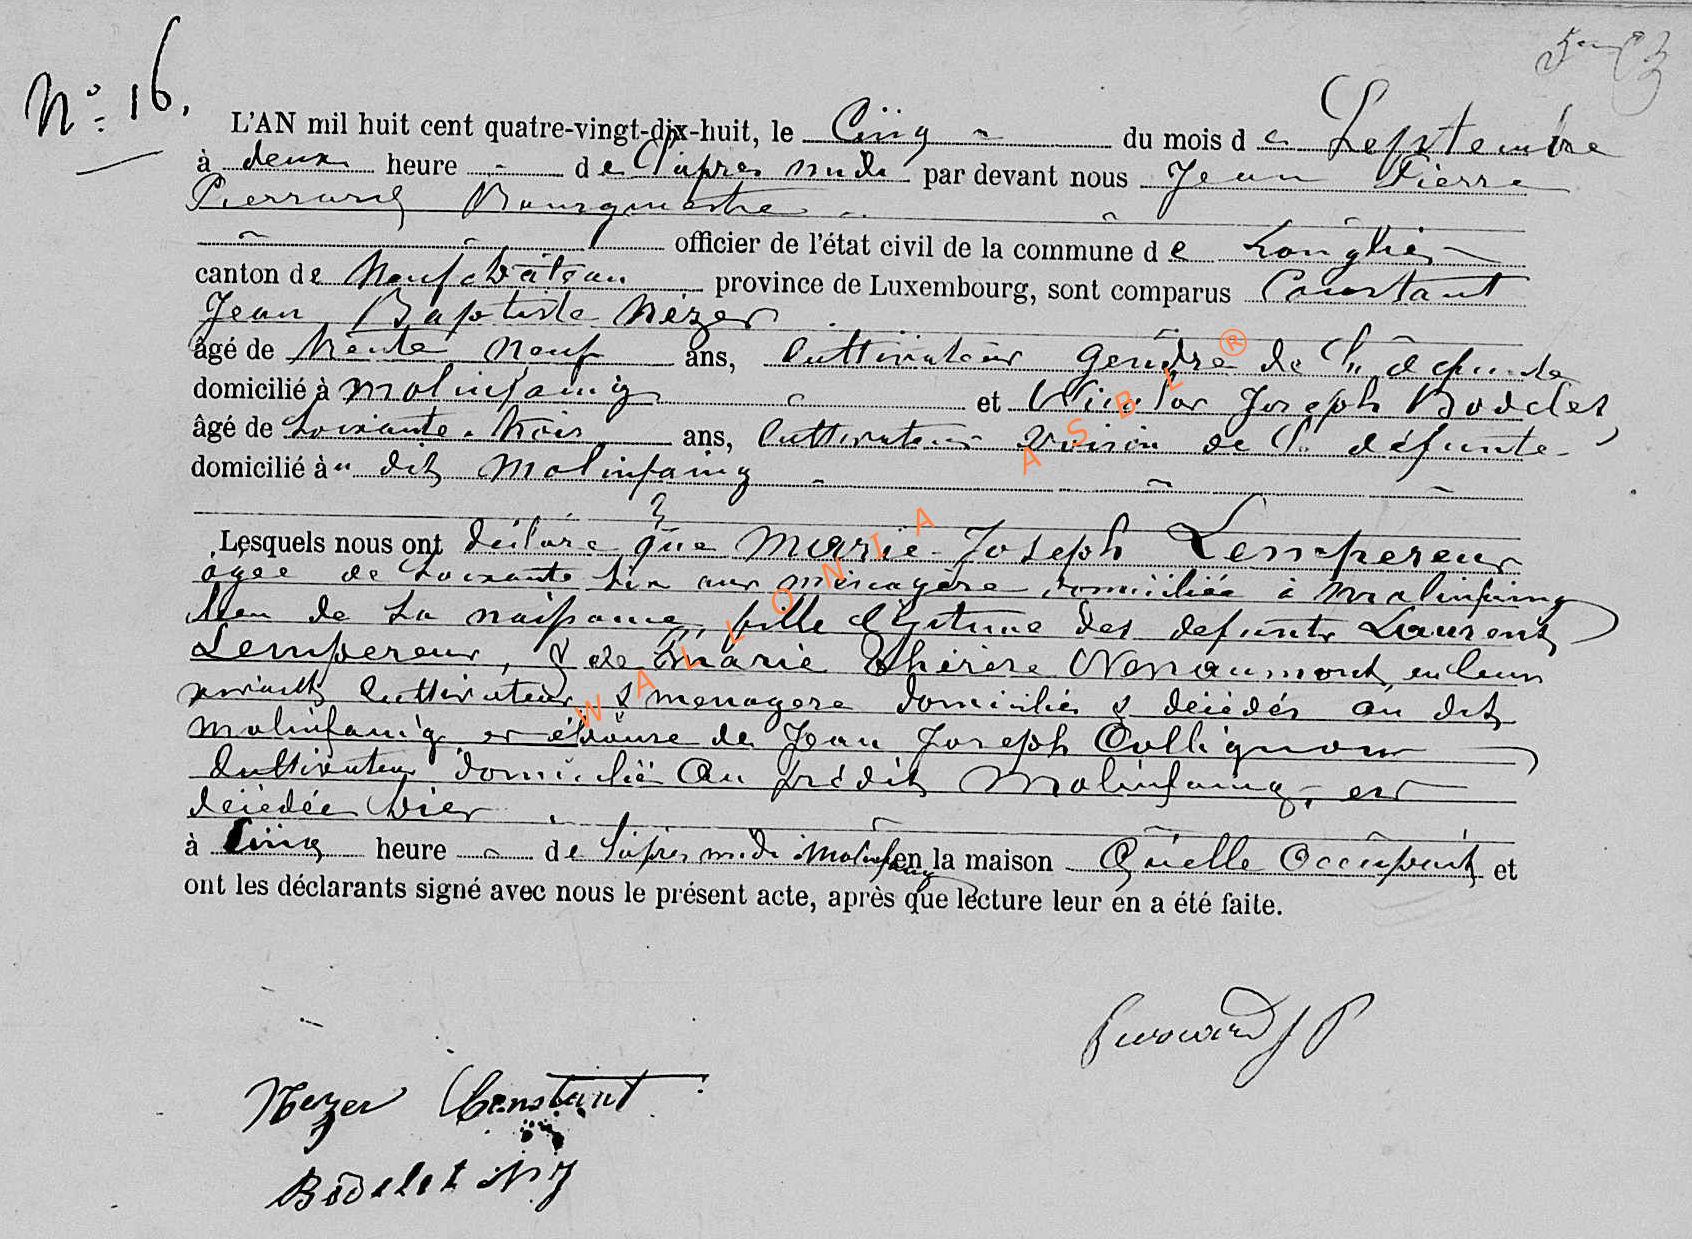 N° 16.
L'AN mil huit cent quatre-vingt-dix-huit, le Cinq du mois de Septembre
à deux heure de l'après midi par devant nous Jean Pierre
Pierrard Bourgmestre
officier de l'état civil de la commune de Longlier
canton de Neufchâteau province de Luxembourg, sont comparus Constant
Jean Baptiste Nézer
âgé de trente neuf ans, Cultivateur gendre de la défunte
domicilié à Molinfaing et Victor Joseph Bodelet,
âgé de soixante-trois ans, Cultivateur voisin de la défunte
domicilié au dit Molinfaing
Lesquels nous ont déclaré que Marie-Joseph Lempereur
agée de soixante ans ménagère domiciliée à Molinfaing
lieu de sa naissance, fille légitime des defunts Laurent
Lempereur, & de Marie Thérèse en leur
vivant cultivateur & menagere domiciliés & décédés au dit
Molinfaing et épouse de Jean Joseph Collignon
Cultivateur domicilié au prédit Molinfaing, est
décédée hier
à Cinq heure de l'après midi Molinfaing en la maison Qu'elle Occupait et
ont les déclarants signé avec nous le présent acte, après que lecture leur en a été faite.
Pierrard J P
Nezer Constant
Bodelet V J
WALLONIA ASBL ®